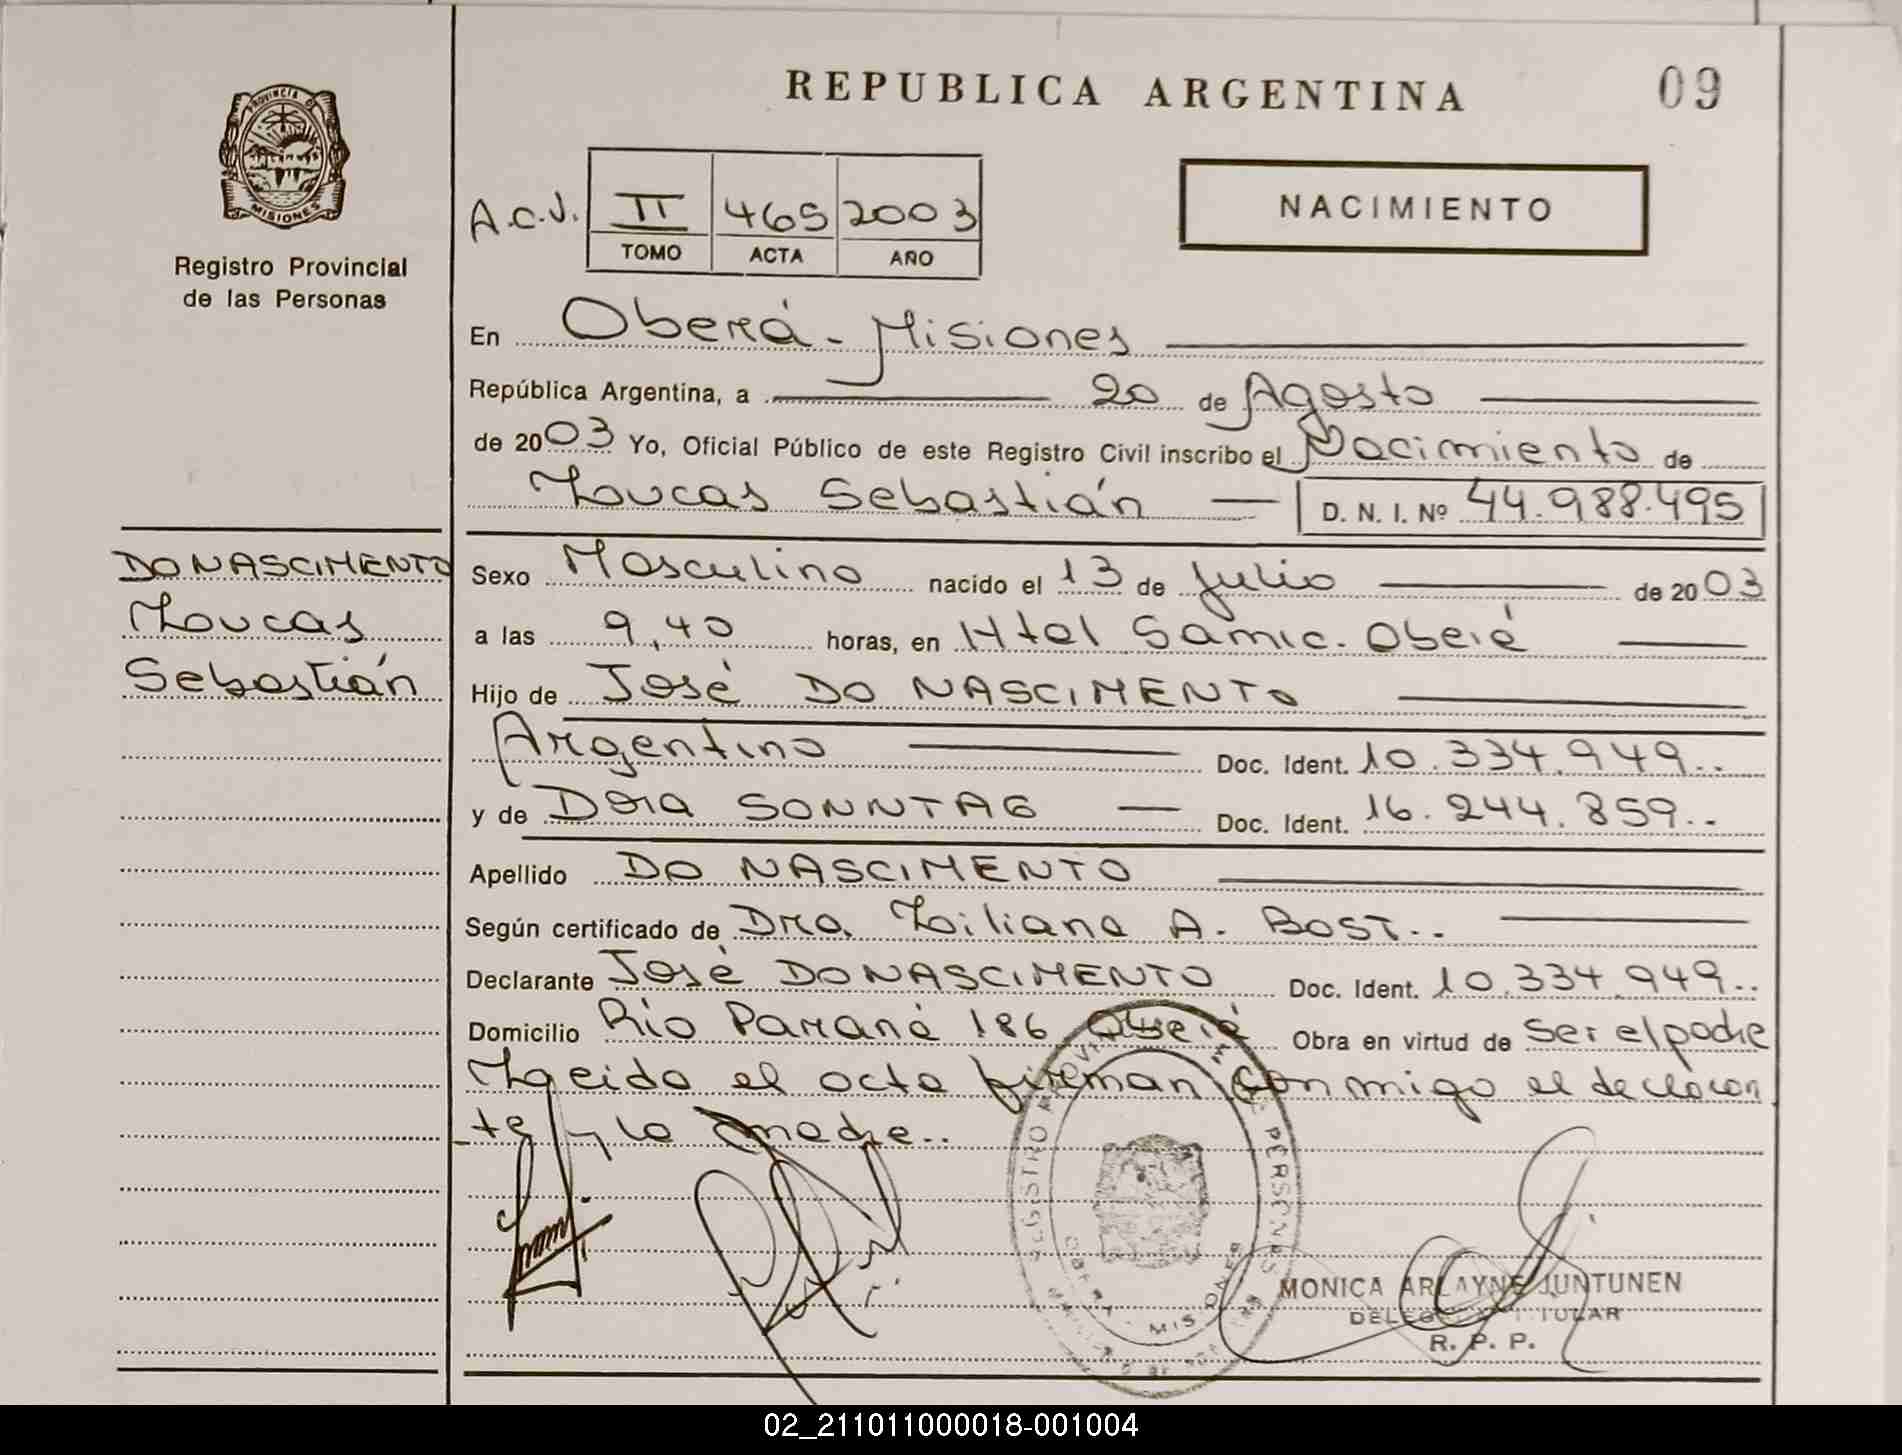 REPUBLICA ARGENTINA
09
PROVINCIA DE
MISIONES
Registro Provincial
de las Personas
A.C.J.
II 465 2003
TOMO ACTA AÑO
NACIMIENTO
En Oberá - Misiones
República Argentina, a 20 de Agosto
de 2003 Yo, Oficial Público de este Registro Civil inscribo el Nacimiento de
Loucas Sebastián D. N. I. Nº 44.988.495
DO NASCIMENTO
Loucas
Sebastián
Sexo Masculino nacido el 13 de Julio de 2003
a las 9,40 horas, en Htal Samic. Oberá
Hijo de José DO NASCIMENTO
Argentino Doc. Ident. 10.334.949..
y de Dora SONNTAG Doc. Ident. 16.244.859..
Apellido DO NASCIMENTO
Según certificado de Dra. Liliana A. BOST..
Declarante José DO NASCIMENTO Doc. Ident. 10.334.949..
Domicilio Río Paraná 186 Oberá Obra en virtud de ser el padre
Leida el acta firman conmigo el declaran
te y la madre..
MONICA ARLAYNE JUNTUNEN
TITULAR
R. P. P.
02_211011000018-001004